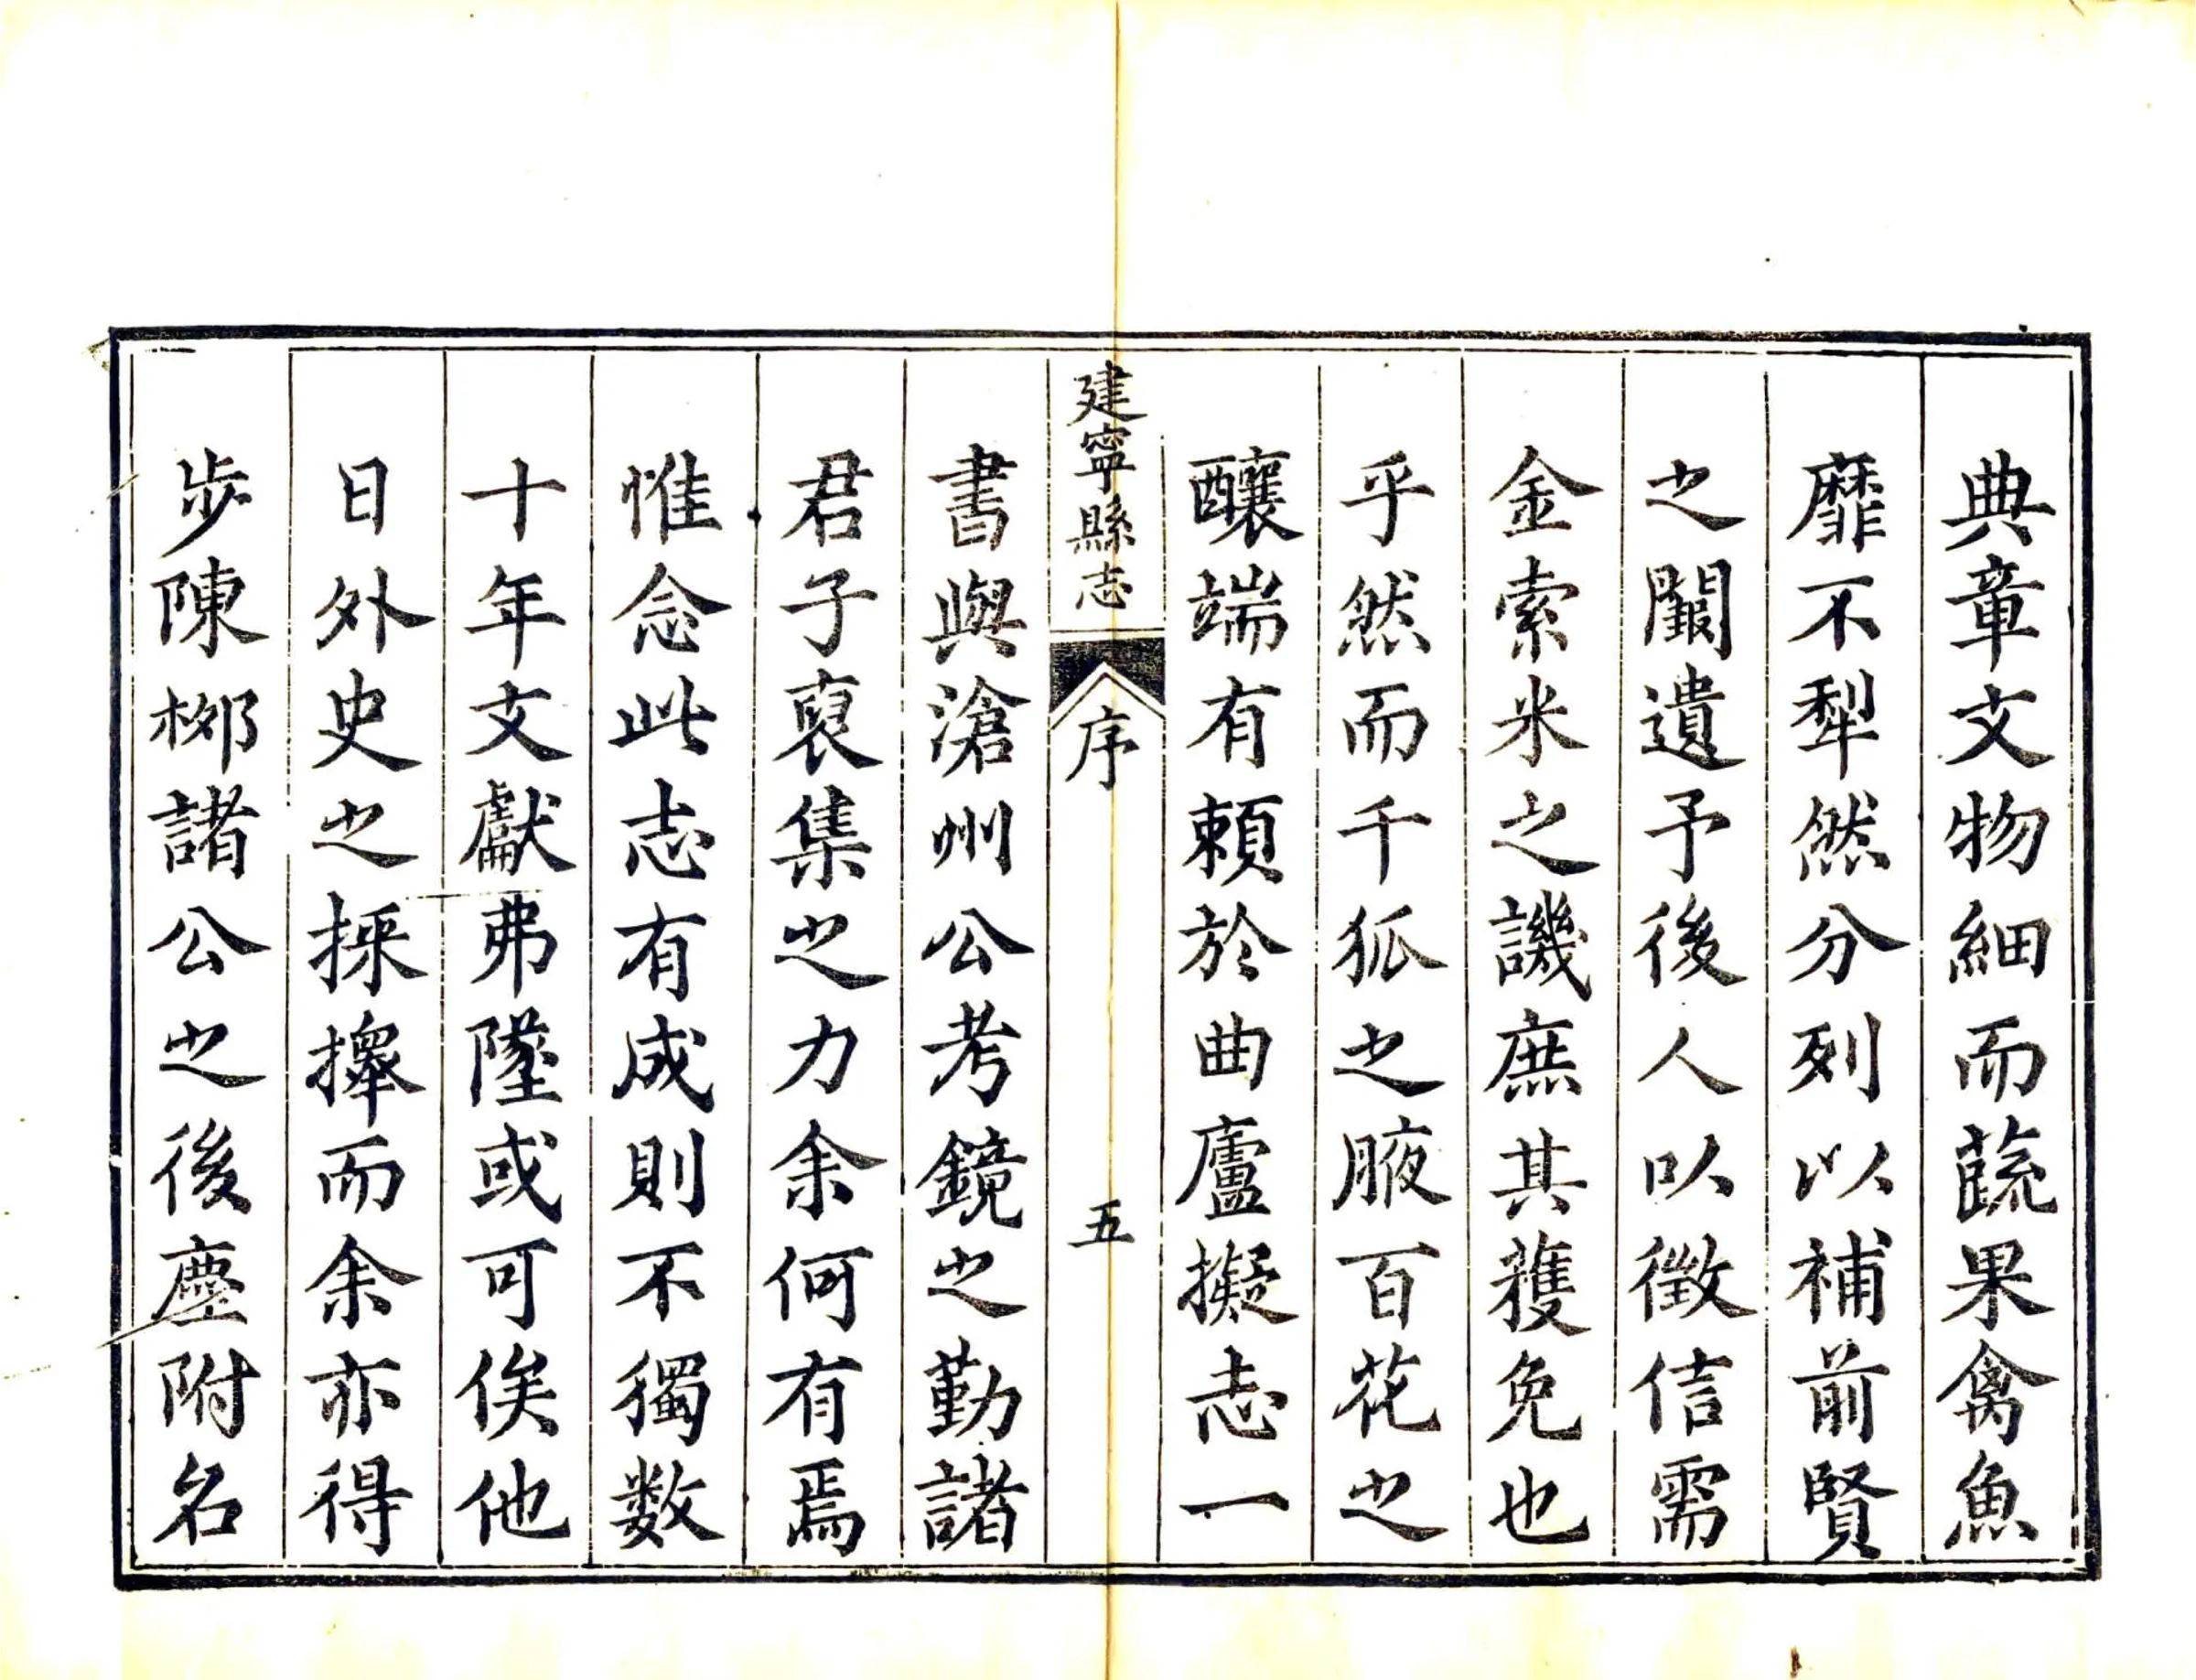 典章文物細而蔬果禽魚
靡不犁然分列以補前賢
之闕遺予後人以徵信需
金索米之譏庶其獲免也
乎然而千狐之腋百花之
釀端有賴於曲廬擬志一
建寧縣志 序 五
書與滄州公考鏡之勤諸
君子裒集之力余何有焉
惟念此志有成則不獨數
十年文獻弗墜或可俟他
日外史之採擇而余亦得
步陳栁諸公之後塵附名